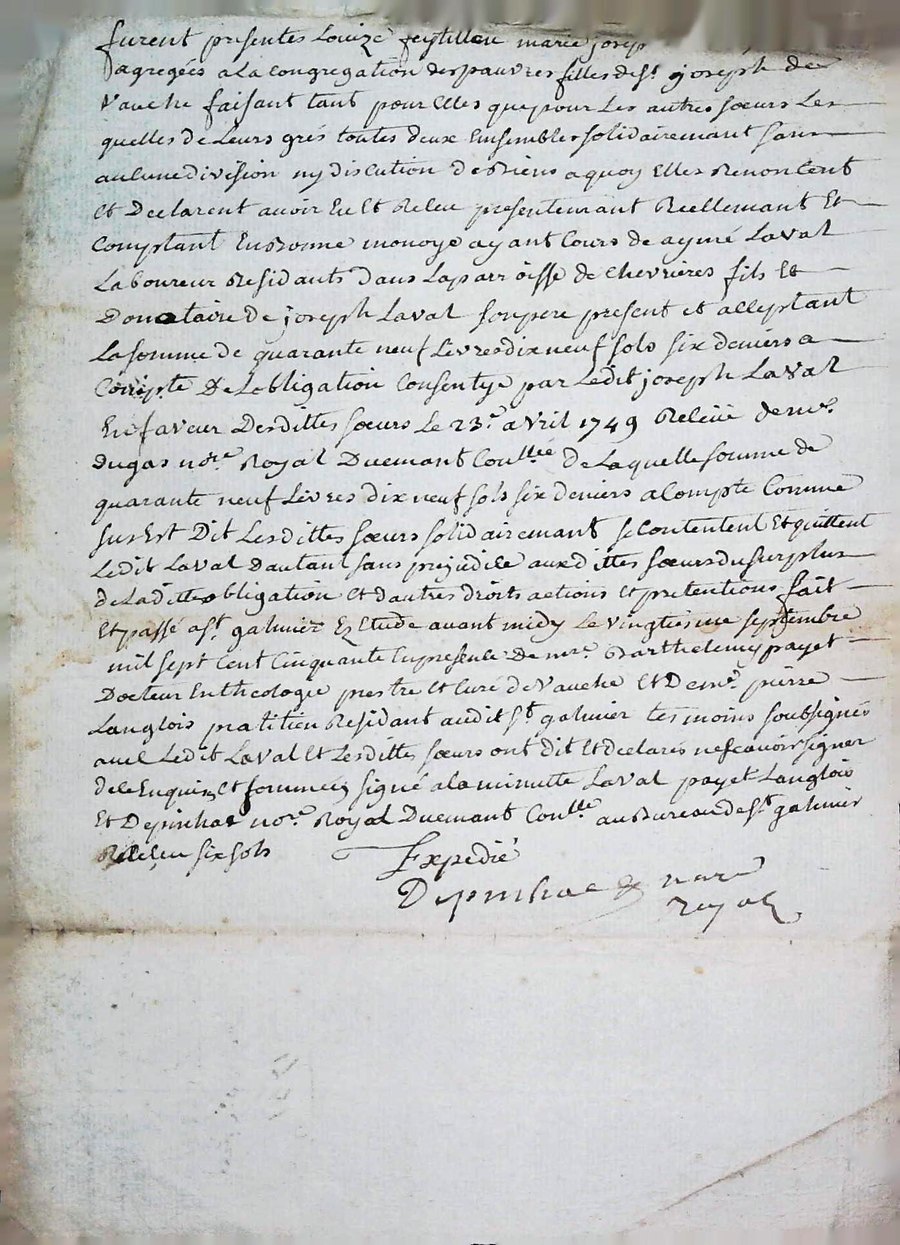 furent presentes Louize feytilleu marie josep
agregées a la congregation des pauvres filles de st joseph de
vauche faisant tant pour Elles que pour Les autres sœurs Les
quelles de Leurs grés toutes deux Ensembles solidairemant sans
aucune division ny discution de Biens a quoy Elles Renoncent
Et Declarent avoir Eu Et Receu presentemant Reellemant Et
Comptant En bonne monoye ayant Cours de aymé Laval
Laboureur Residants dans la parroisse de chevrieres fils Et
Donataire De joseph Laval son pere present et acceptant
La somme de quarante neuf Livres dix neuf sols six deniers a
Compte De Lobligation Consentye par Ledit joseph Laval
En faveur Desdittes sœurs Le 23e avril 1749 Receüe de me
dugas nore Royal Duemant Conllée de Laquelle somme de
quarante neuf Livres dix neuf sols six deniers a Compte Comme
sus Est Dit Lesdittes sœurs solidairemant se Contentent Et quittent
Ledit Laval dautant sans prejudice auxdittes sœurs du surplus
de Laditte obligation Et dautres droits actions Et pretentions fait
Et passé a st galmier Ez Etude avant midy Le vingtiesme septembre
mil sept Cent Cinquante En presence De mre Barthelemy payet
Docteur En theologie prestre Et Curé de vauche Et De me pierre
Langlois praticien Residant audit st galmier tesmoins soubsignés
avec Ledit Laval Et Lesdittes sœurs ont dit Et declarés ne scavoir signer
de ce Enquizes Et sommées signé a la minutte Laval payet Langlois
Et Depinhac nore Royal Duemant Conllé au Bureau de st galmier
Receu six sols
Expedié
Depinhac nore
royal